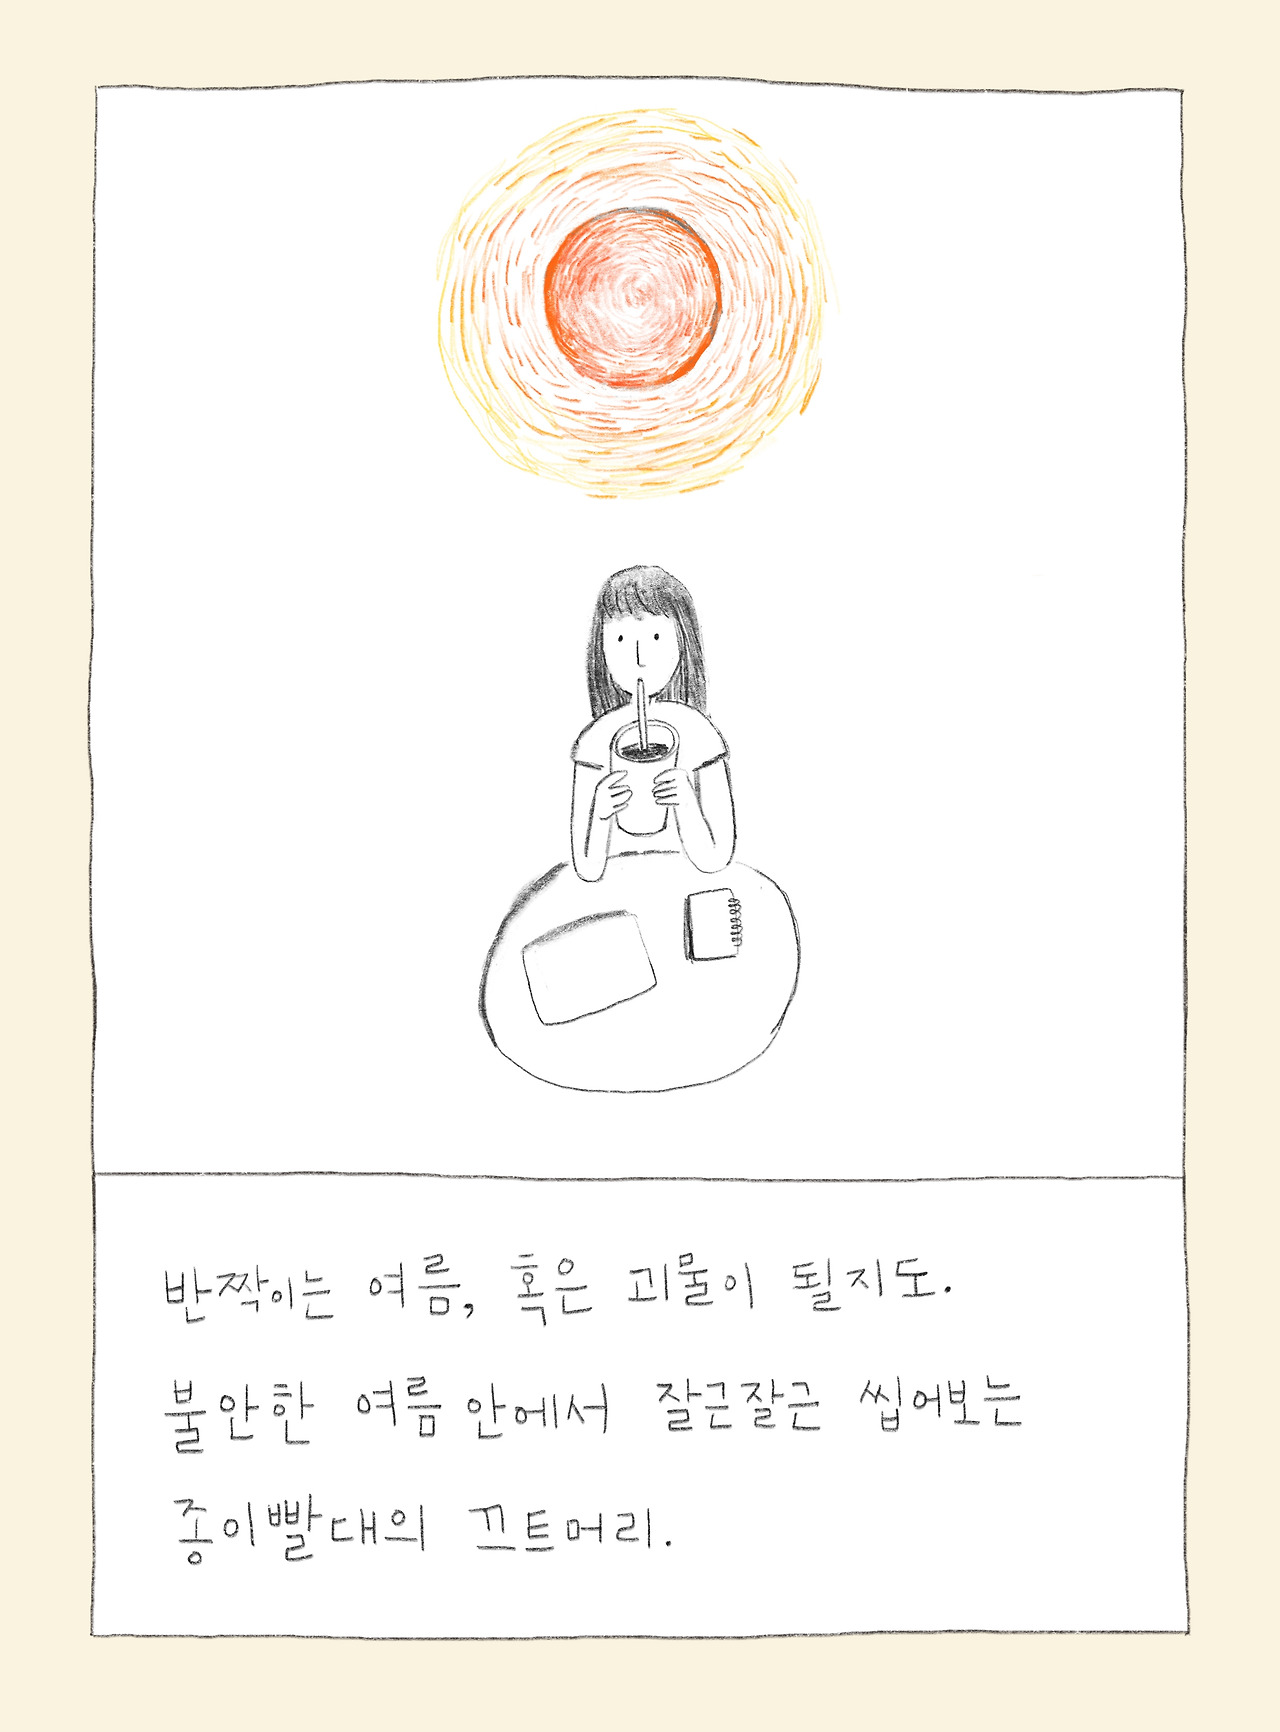 반짝이는 여름, 혹은 괴물이 될지도.
불안한 여름 안에서 잘근잘근 씹어보는
종이빨대의 끄트머리.